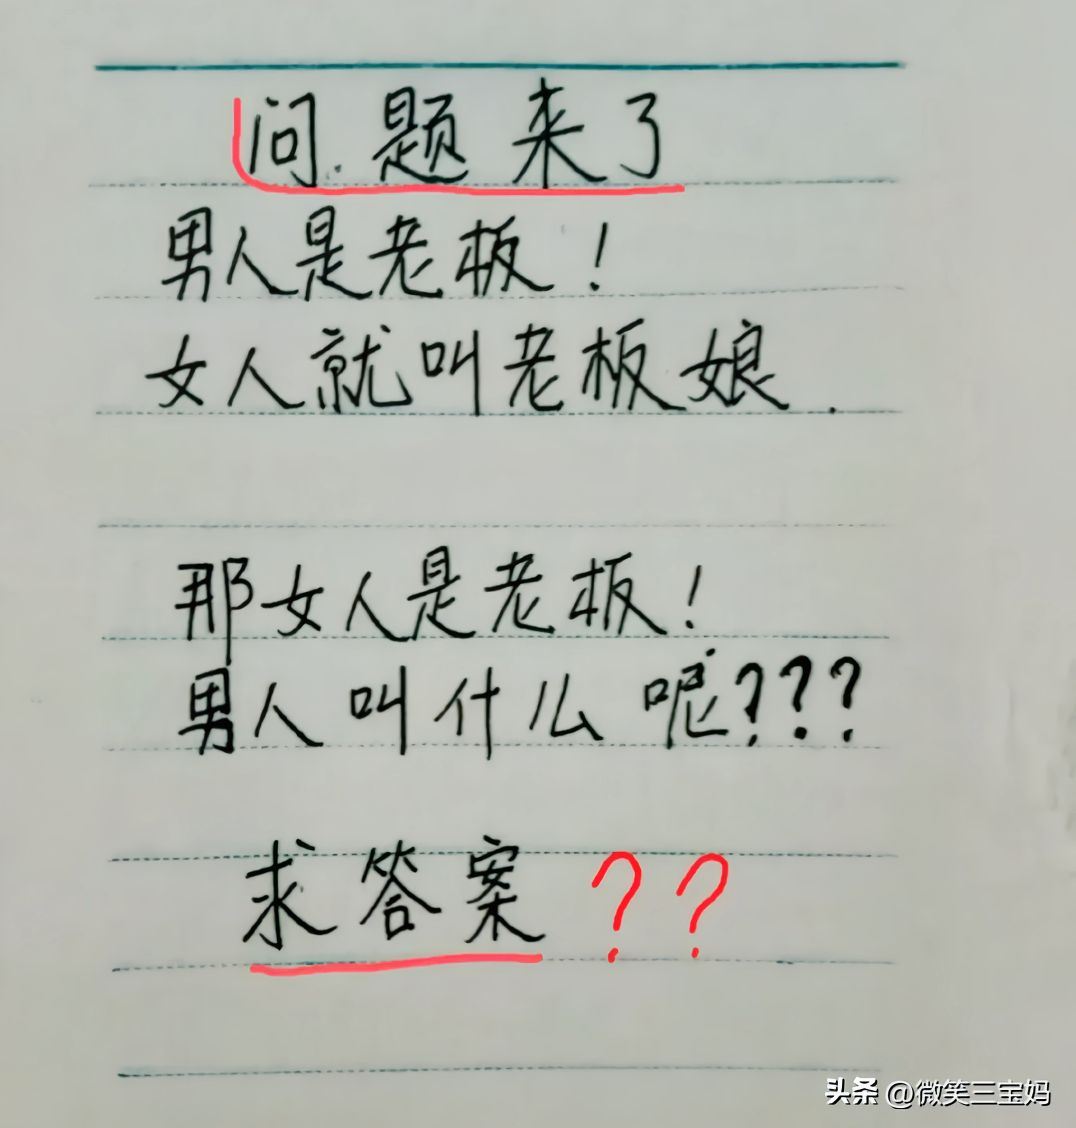 问.题来了
男人是老板!
女人就叫老板娘.
那女人是老板!
男人叫什么呢???
求答案??
头条 @微笑三宝妈